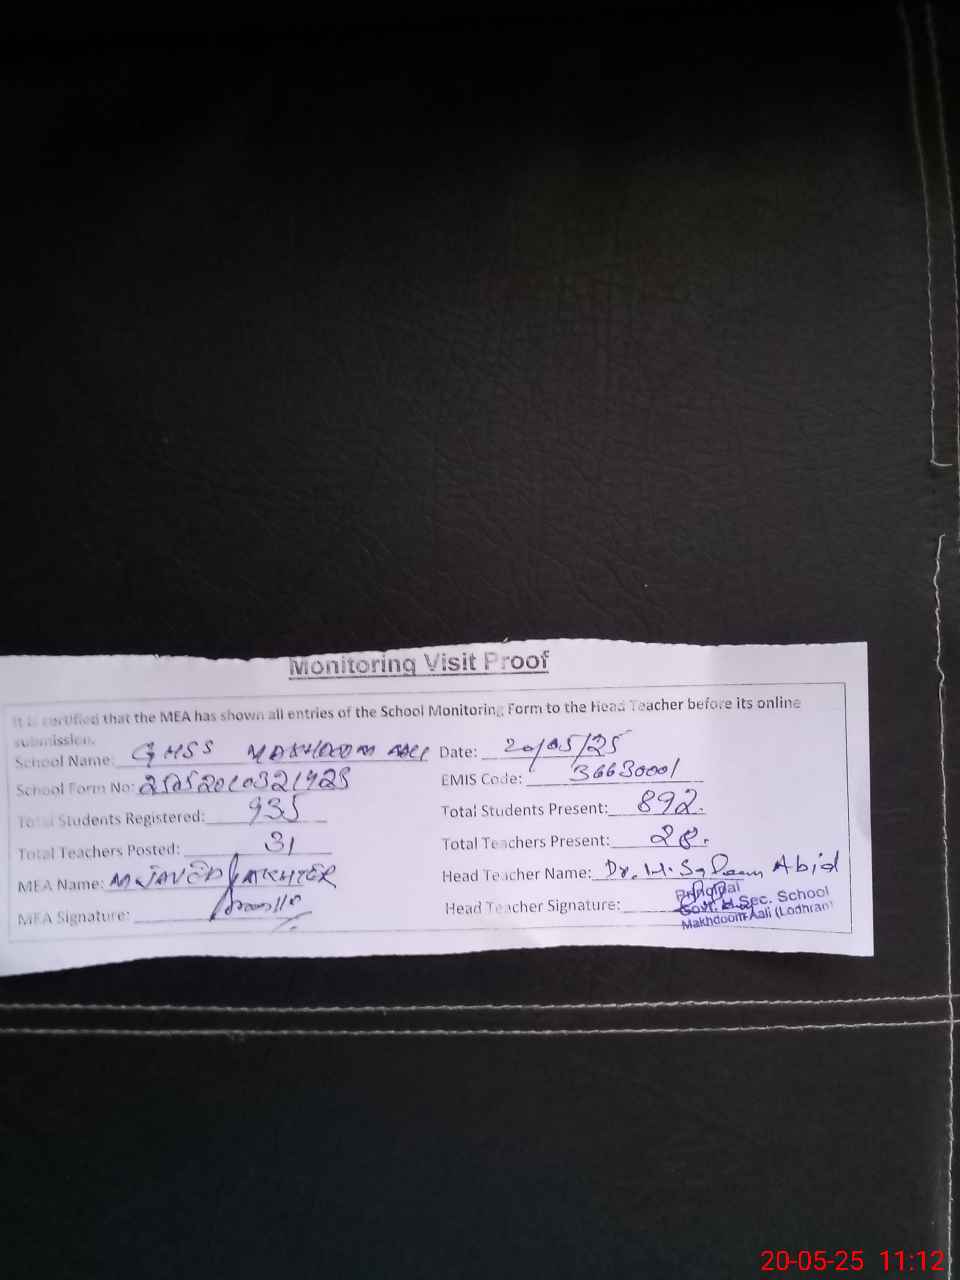 Monitoring Visit Proof
It is certified that the MEA has shown all entries of the School Monitoring Form to the Head Teacher before its online
submission.
School Name: GHSS MAKHDOOM AALI Date: 20/05/25
School Form No: EMIS Code: 36630001
Total Students Registered: 935 Total Students Present: 892.
Total Teachers Posted: 31 Total Teachers Present: 28.
MEA Name: M JAVED AKHTER Head Teacher Name: Dr. H. Abid
MEA Signature: Head Teacher Signature:
Principal
Govt. H. Sec. School
Makhdoom Aali (Lodhran)
20-05-25 11:12